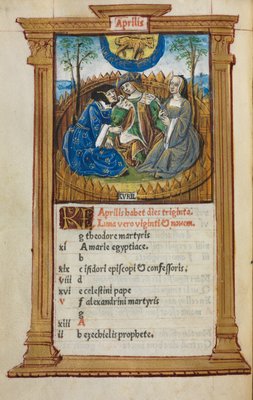 Aprilis
AVRIL
KL Aprilis habet dies triginta.
Luna vero viginti & novem.
g theodore martyris
xi A marie egyptiace.
b
xix c isidori episcopi & confessoris.
viii d
xvi e celestini pape
v f alexandrini martyris
g
xiii A
ii b ezechielis prophete.